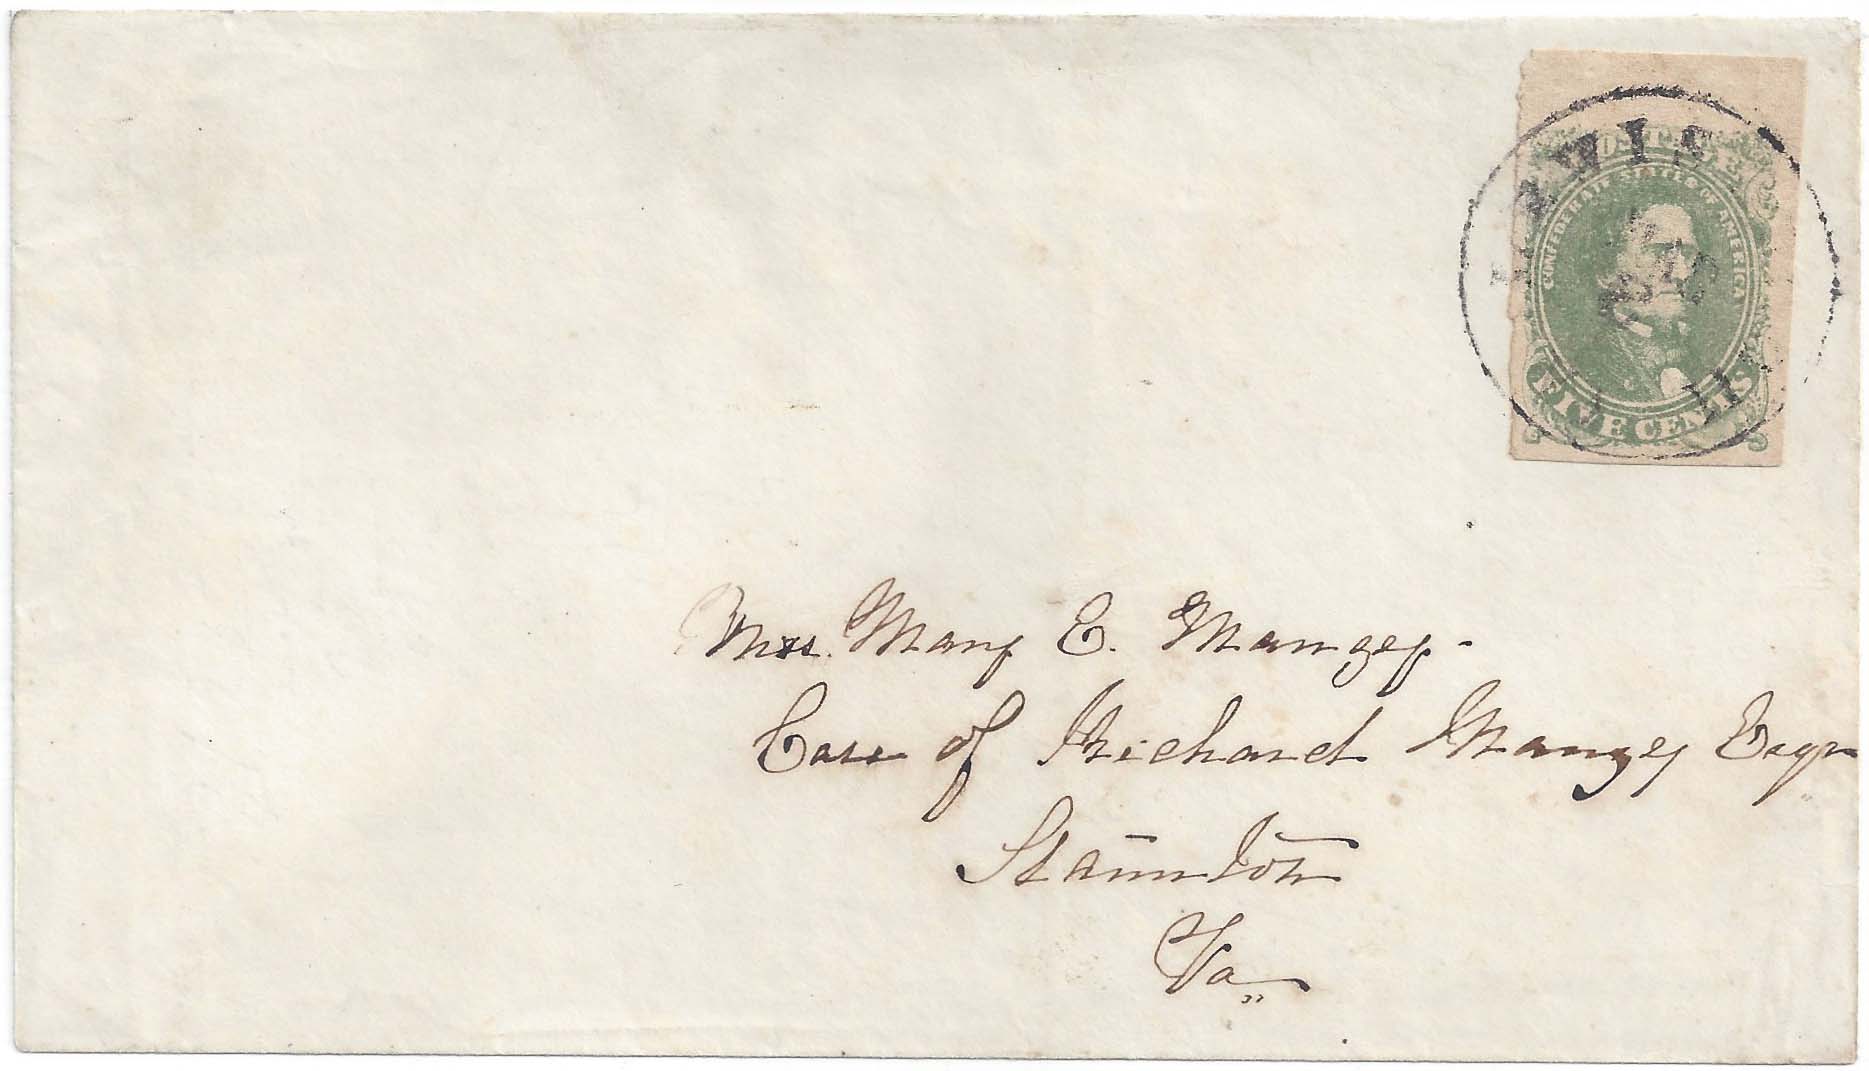 POSTAGE
CONFEDERATE STATES OF AMERICA
FIVE CENTS
Mrs. Mary E. Manzey -
Care of Richard Manzey Esqr
Staunton
Va